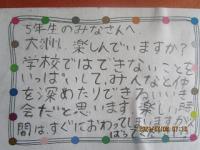 5年生のみなさんへ
大洲、楽しんでいますか?
学校ではできないことを
いっぱいして、みんなと仲
を深めたりできるいい機
会だと思います。楽しい時
間はすぐにおわってしまいますが